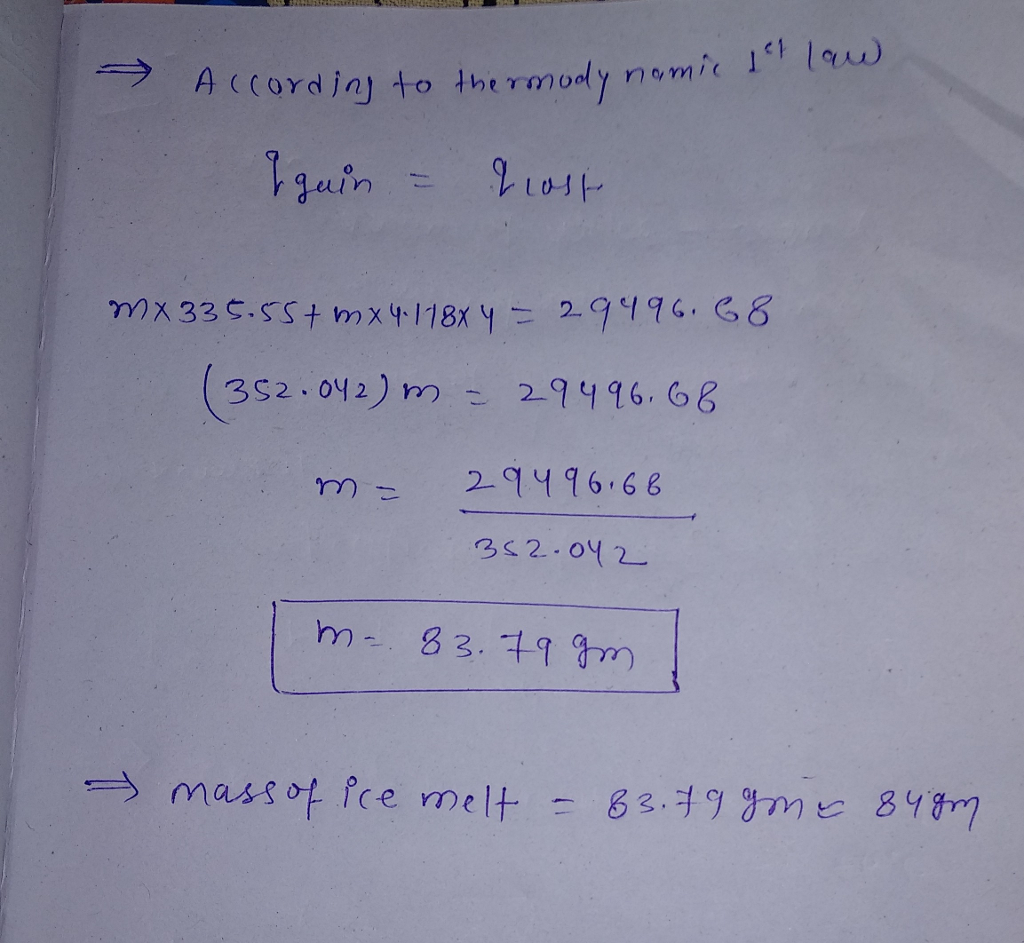 ⇒ According to thermodynamic 1st law
q gain = q lost
m×335.55+m×4.118×4 = 29496.68
(352.042) m = 29496.68
m = 29496.68
352.042
m = 83.79 gm
⇒ mass of ice melt = 83.79 gm ≈ 84gm